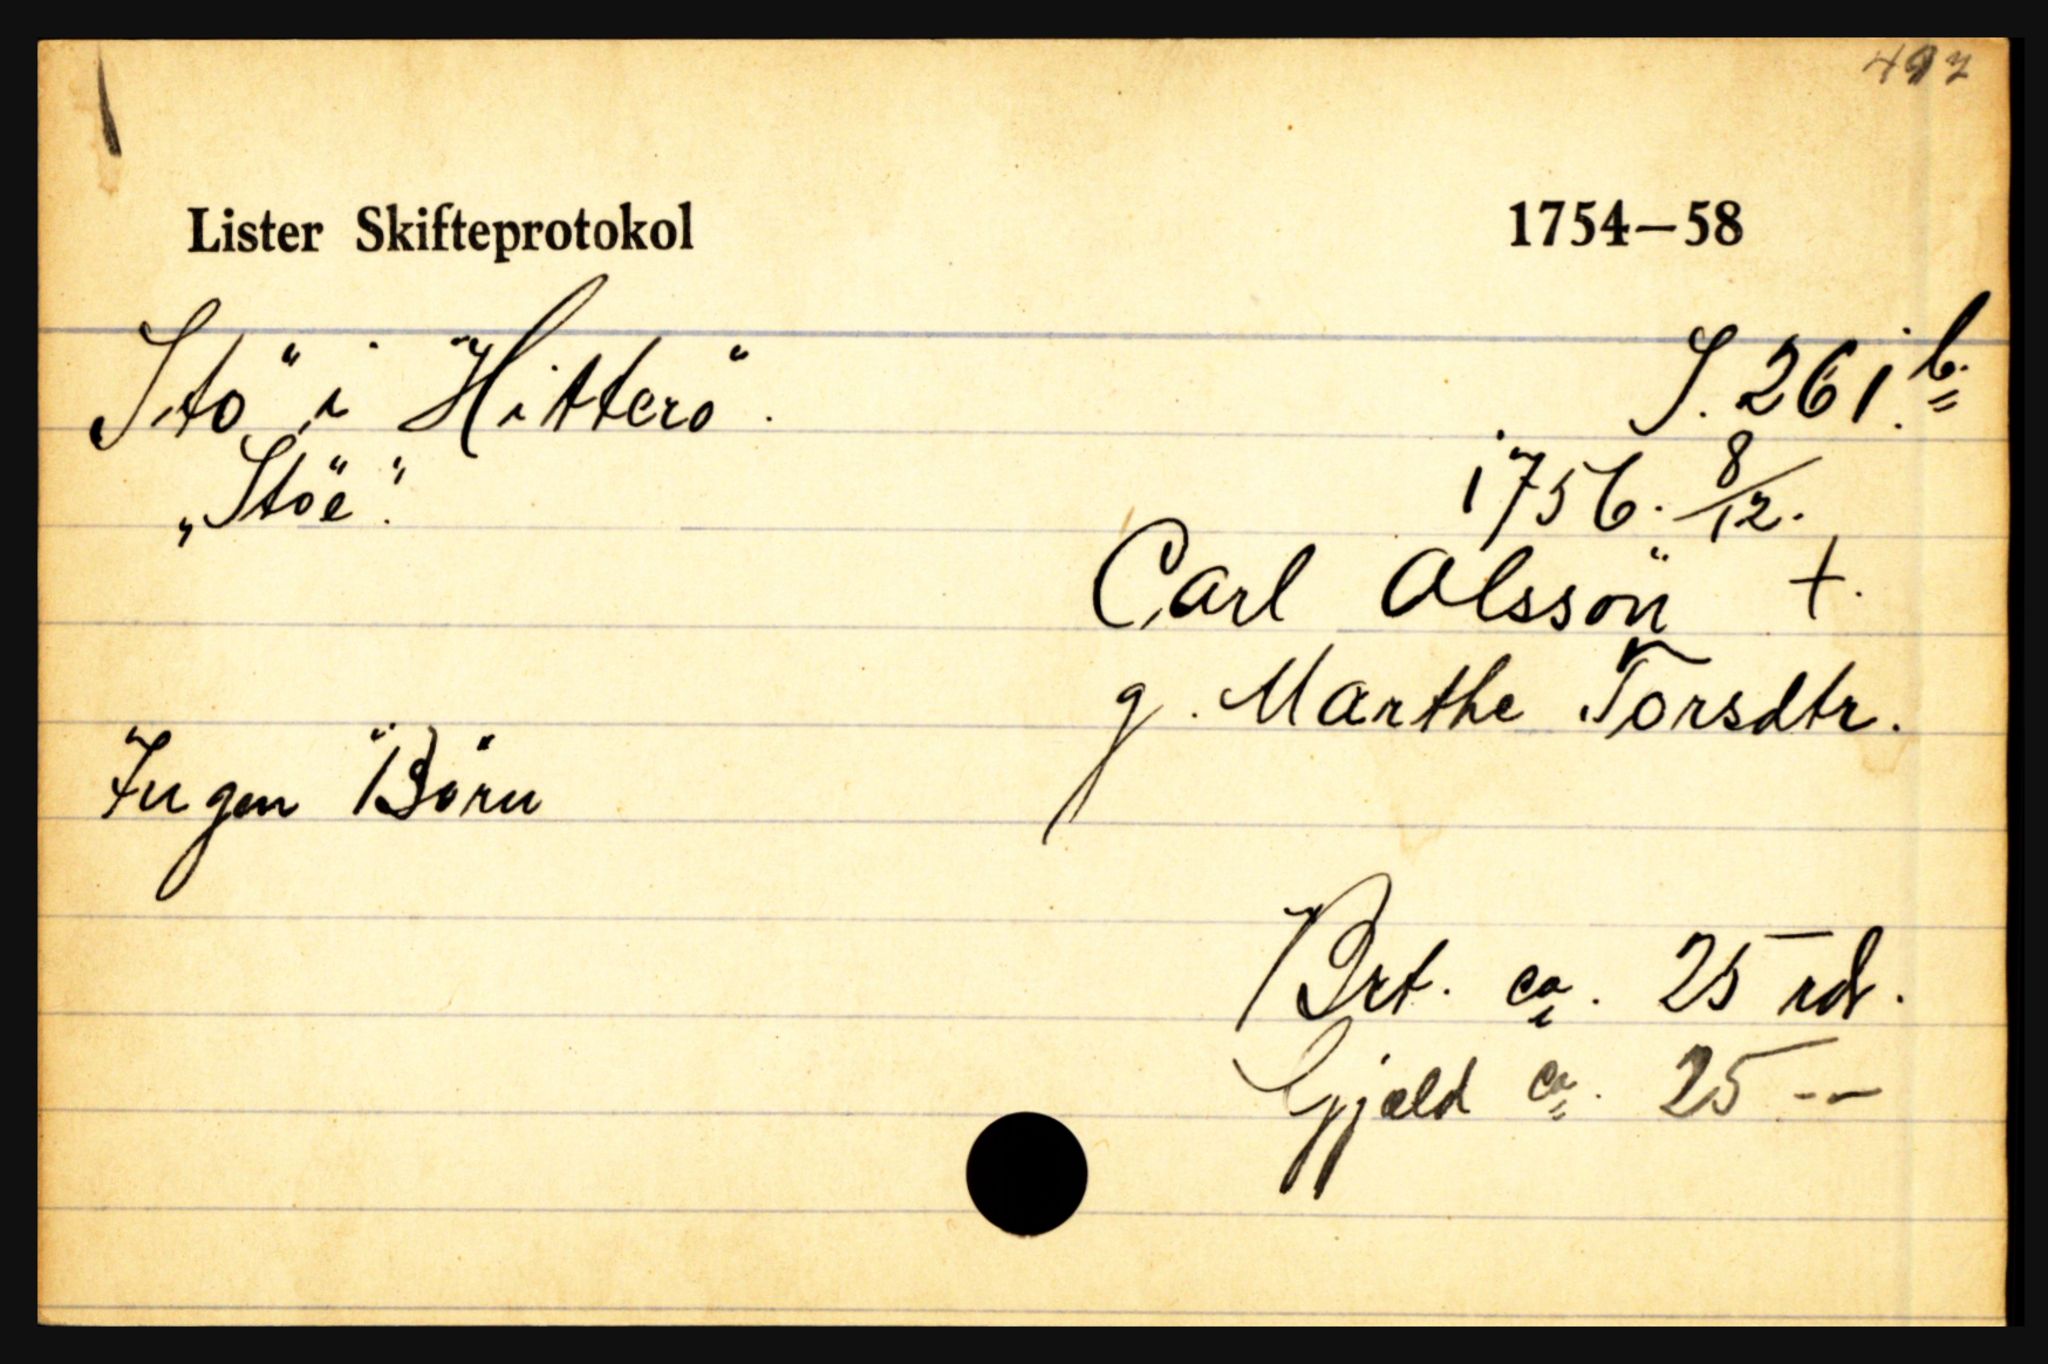 Lister Skifteprotokol 1754—58
Stö i Hitterö. S. 261.b.
„Stöe". 1756. 8/12.
Carl Olssön +.
g. Marthe Torsdtr.
Ingen Börn
Brt. ca. 25 rdr.
Gjæld ca. 25 --